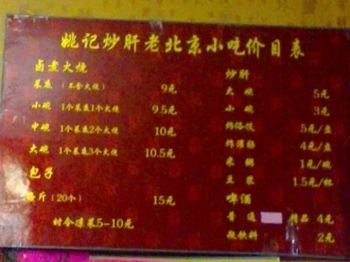 姚记炒肝老北京小吃价目表
卤煮火烧
菜底（不含火烧） 9元
小碗 1个菜底1个火烧 9.5元
中碗 1个菜底2个火烧 10元
大碗 1个菜底3个火烧 10.5元
包子
每斤（20个） 15元
时令凉菜5-10元
炒肝
大碗 5元
小碗 3元
炸咯馇 5元/盘
炸灌肠 4元/盘
米粥 1元/碗
豆浆 1.5元/杯
啤酒
普通 精品 4元
软饮料 2元